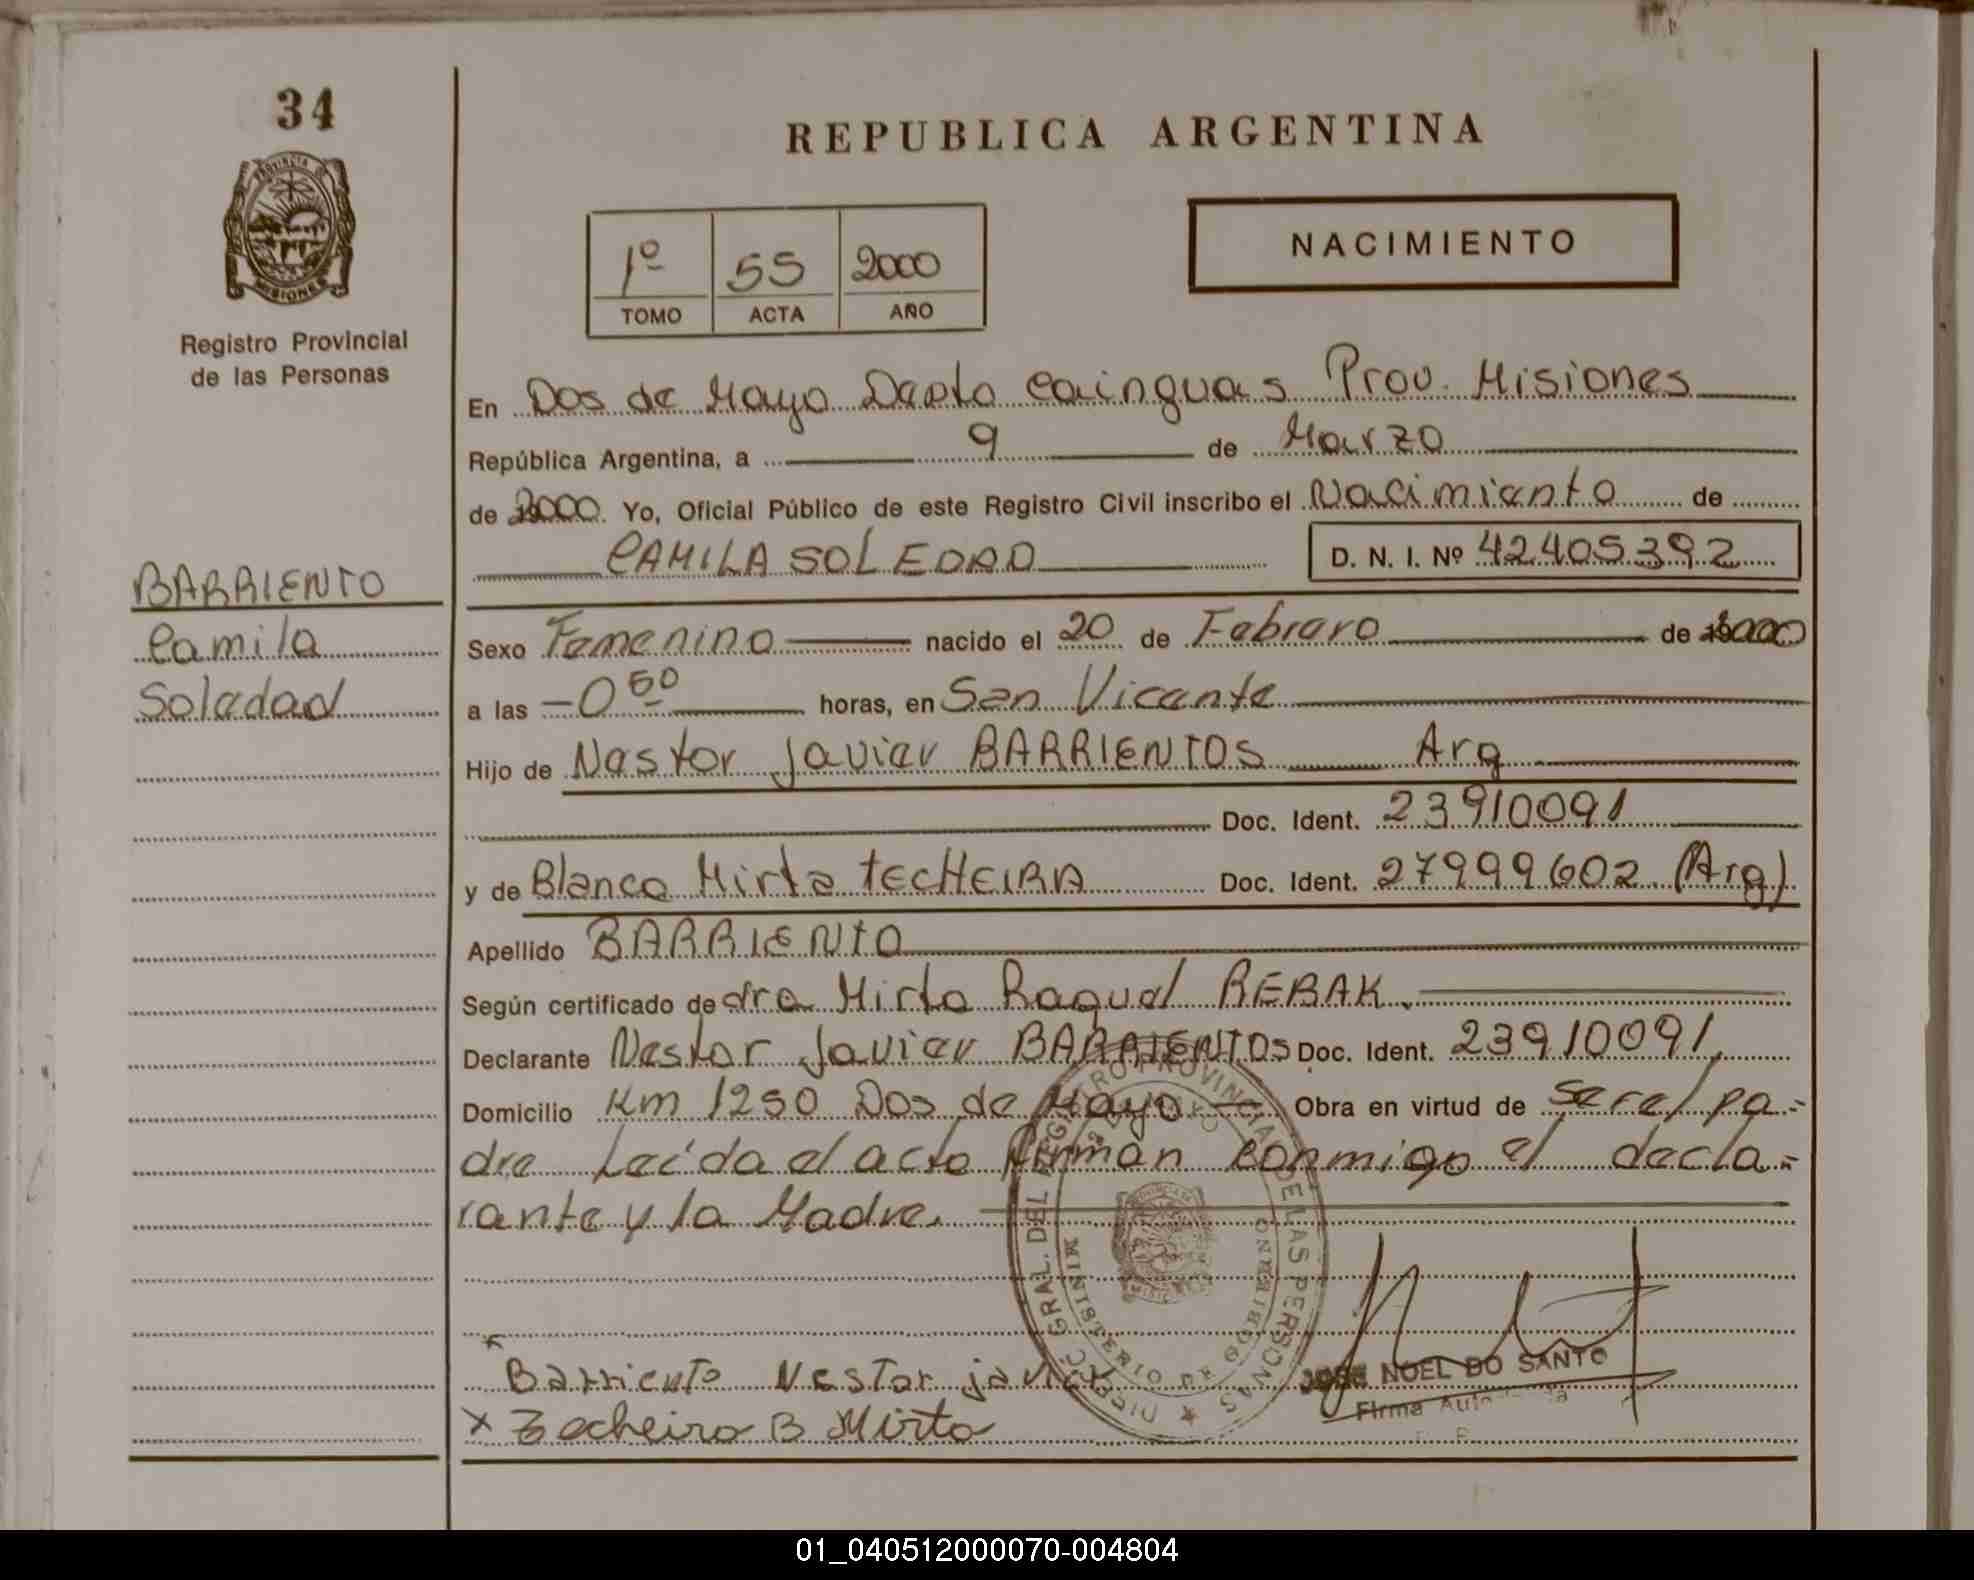 34
REPUBLICA ARGENTINA
PROVINCIA DE
MISIONES
Registro Provincial
de las Personas
1º 55 2000
TOMO ACTA AÑO
NACIMIENTO
En Dos de Mayo Dapto Cainguas Prov. Misiones
República Argentina, a 9 de Marzo
de 2000. Yo, Oficial Público de este Registro Civil inscribo el Nacimiento de
CAMILA SOLEDAD D. N. I. Nº 42405392
BARRIENTO
Camila
Soledad
Sexo Femenino nacido el 20 de Febrero de 2000
a las -0 50 horas, en San Vicente
Hijo de Nestor Javier BARRIENTOS Arg
Doc. Ident. 23910091
y de Blanca Mirta TECHEIRA Doc. Ident. 27999602 (Arg)
Apellido BARRIENTO
Según certificado de dra Mirta Raquel REBAK.
Declarante Nestor Javier BARRIENTOS Doc. Ident. 23910091,
Domicilio Km 1250 Dos de Mayo Obra en virtud de ser el pa-
dre Leída el acta firman conmigo el decla-
rante y la Madre.
DIREC. GRAL. DEL REGISTRO PROVINCIAL DE LAS PERSONAS
MINISTERIO DE GOBIERNO
PROVINCIA DE
MISIONES
Barriento Nestor javier
JOSE NOEL DO SANTO
Firma
x Techeira B Mirta
01_040512000070-004804